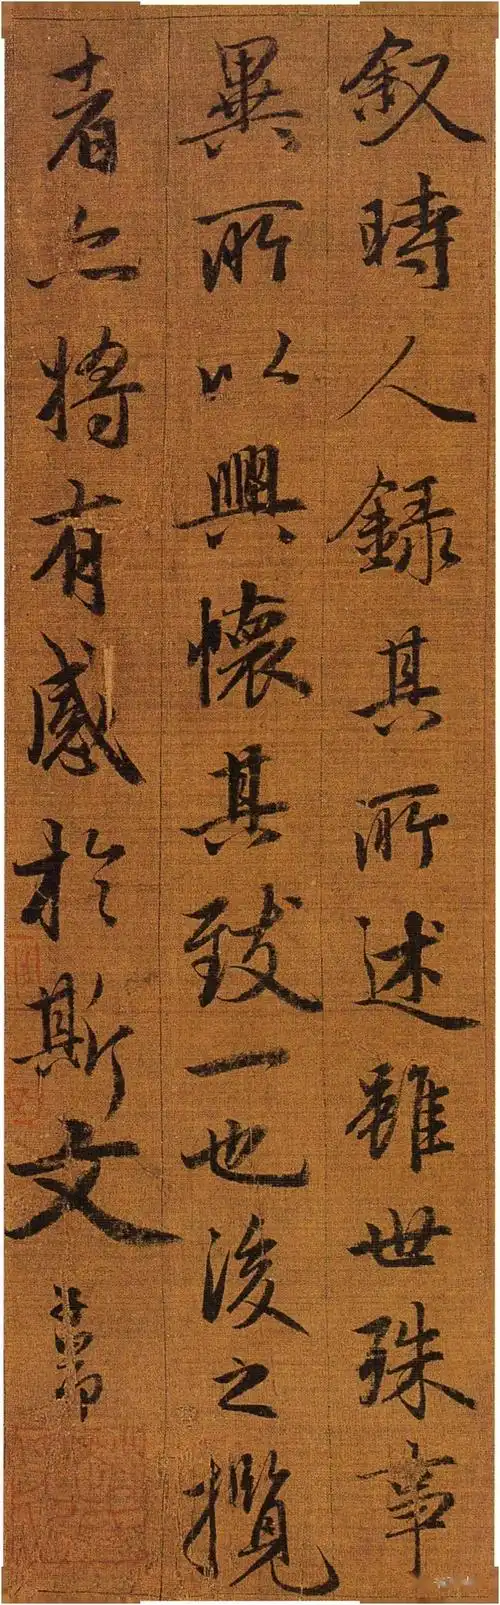 敘時人錄其所述雖世殊事
異所以興懷其致一也後之攬
者亦將有感於斯文
芾